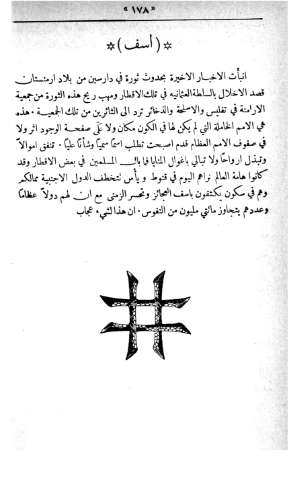 «١٧٨»
*( أسف )*
انبأت الاخبار الاخيرة بحدوث ثورة في دارسين من بلاد ارمنستان
قصد الاخلال بالسلطة العثمانيه في تلك الاقطار ومهب ريح هذه الثورة من جمعية
الارامنة في تفليس والاسلحة والذخائر ترد الى الثائرين من تلك الجمعية ٠ هذه
هي الامم الخاملة التي لم يكن لها في الكون مكان ولا على صفحة الوجود اثر ولا
في صفوف الامم العظام قدم اصبحت تطلب اسمًا سميًّا وشأنًا عليًّا ٠ تنفق اموالًا
وتبذل ارواحًا ولا تبالي باغوال المنايا فما بال المسلمين في بعض الاقطار وقد
كانوا هامة العالم نراهم اليوم في قنوط ويأس تتخطف الدول الاجنبية ممالكهم
وهم في سكون يكتفون باسف العجائز وتحسر الزمنى مع ان لهم دولًا عظامًا
وعددهم يتجاوز مائتي مليون من النفوس ٠ ان هذا لشيء عجاب